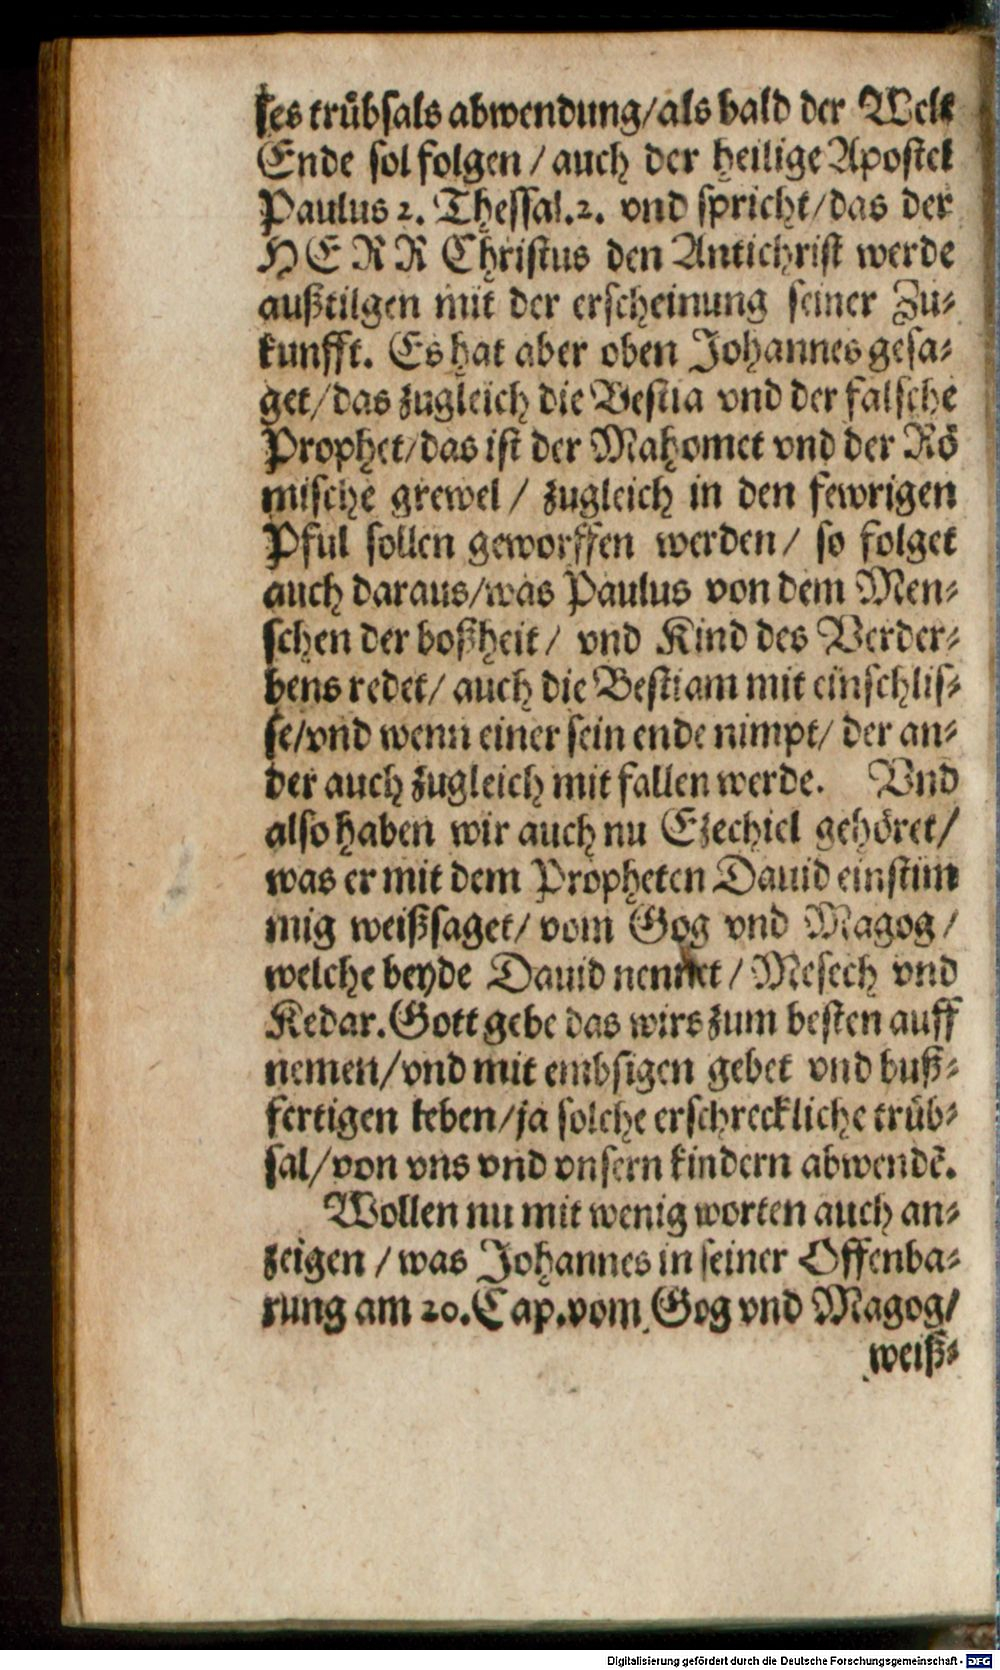 ses trůbsals abwendung/als bald der Welt
Ende sol folgen / auch der heilige Apostel
Paulus 2. Thessal.2. vnd spricht/das der
HERR Christus den Antichrist werde
außtilgen mit der erscheinung seiner Zu-
kunfft. Es hat aber oben Johannes gesa-
get/das zugleich die Bestia vnd der falsche
Prophet/das ist der Mahomet vnd der Rö
mische grewel / zugleich in den fewrigen
Pful sollen geworffen werden/ so folget
auch daraus/was Paulus von dem Men-
schen der boßheit/ vnd Kind des Verder-
bens redet/ auch die Bestiam mit einschlis-
se/vnd wenn einer sein ende nimpt/ der an-
der auch zugleich mit fallen werde. Vnd
also haben wir auch nu Ezechiel gehöret/
was er mit dem Propheten Dauid einstim
mig weißsaget/ vom Gog vnd Magog /
welche beyde Dauid nennet / Mesech vnd
Kedar. Gott gebe das wirs zum besten auff
nemen/vnd mit embsigen gebet vnd buß-
fertigen leben/ja solche erschreckliche trůb-
sal/von vns vnd vnsern kindern abwendẽ.
Wollen nu mit wenig worten auch an-
zeigen / was Johannes in seiner Offenba-
rung am 20. Cap. vom Gog vnd Magog/
weiß-
Digitalisierung gefördert durch die Deutsche Forschungsgemeinschaft - DFG